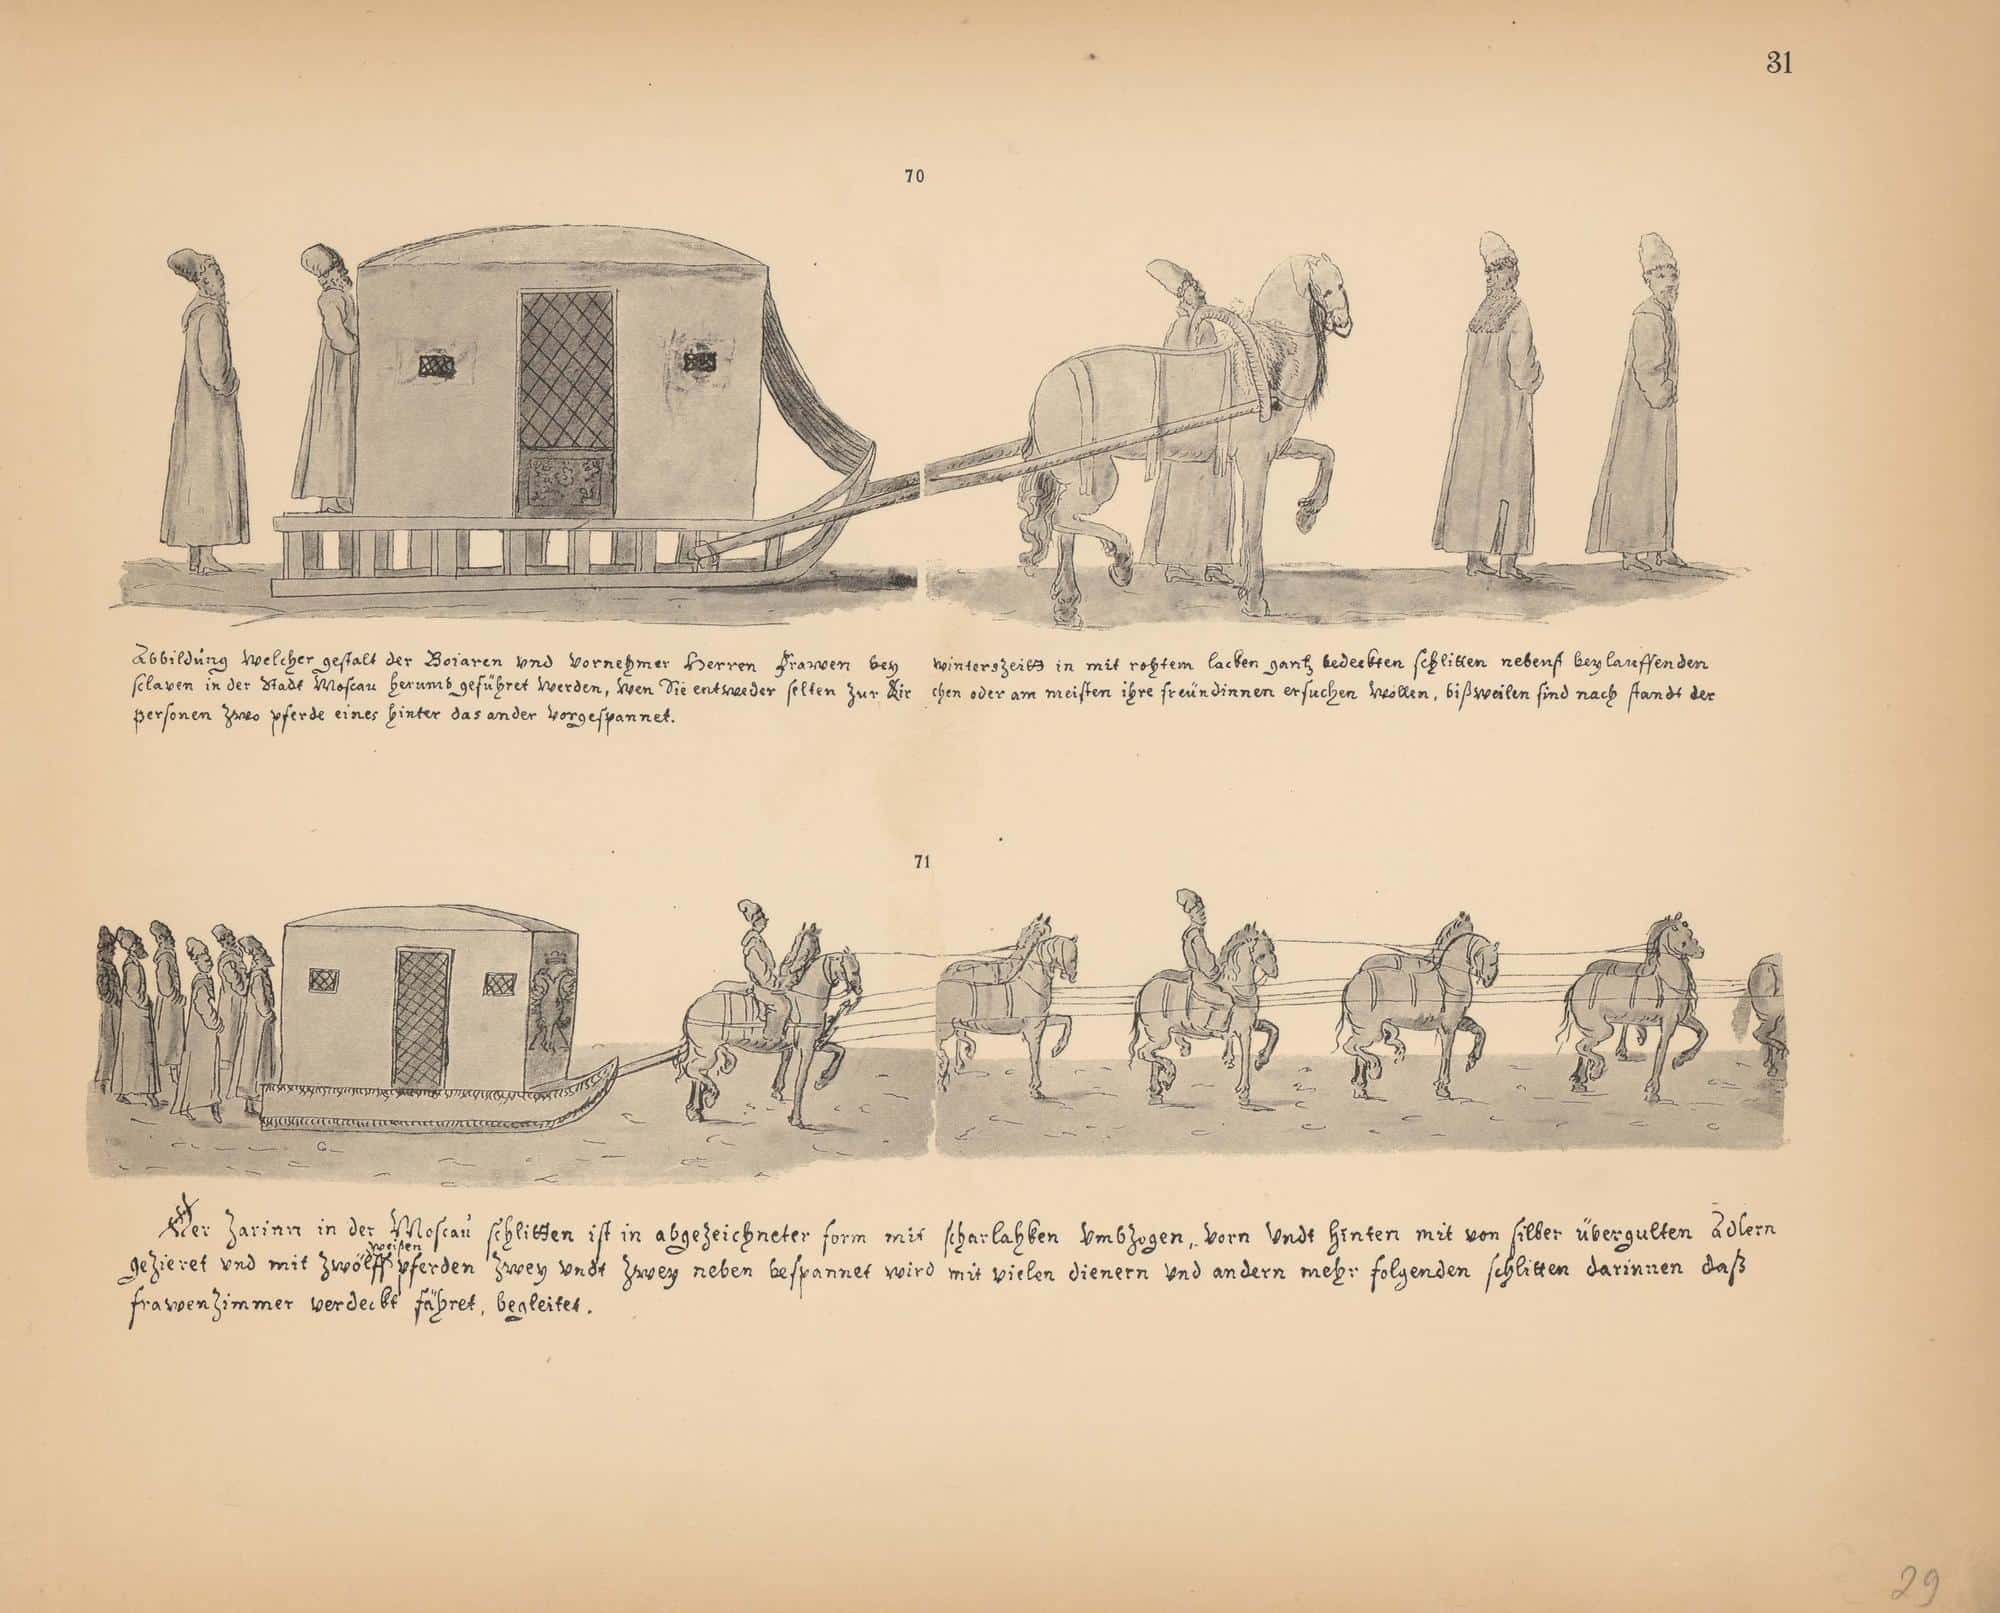 31
70
Abbildung welcher gestalt der Boiaren vnd vornehmer Herren Frawen bey winterszeitt in mit rohtem lacken gantz bedeckten schlitten nebenst beylauffenden
sclaven in der Stadt Moscau herumb geführet werden, wen Sie entweder selten zur Kir chen oder am meisten ihre freündinnen ersuchen wollen, bißweilen sind nach standt der
personen zwo pferde eines hinter das ander vorgespannet.
71
Der Zarinn in der Moscau schlitten ist in abgezeichneter form mit scharlahken vmbzogen, vorn vndt hinten mit von silber übergulten Adlern
weißen
gezieret vnd mit zwölff pferden zwey vndt zwey neben bespannet wird mit vielen dienern vnd andern mehr folgenden schlitten darinnen daß
frawenzimmer verdeckt fähret, begleitet.
29